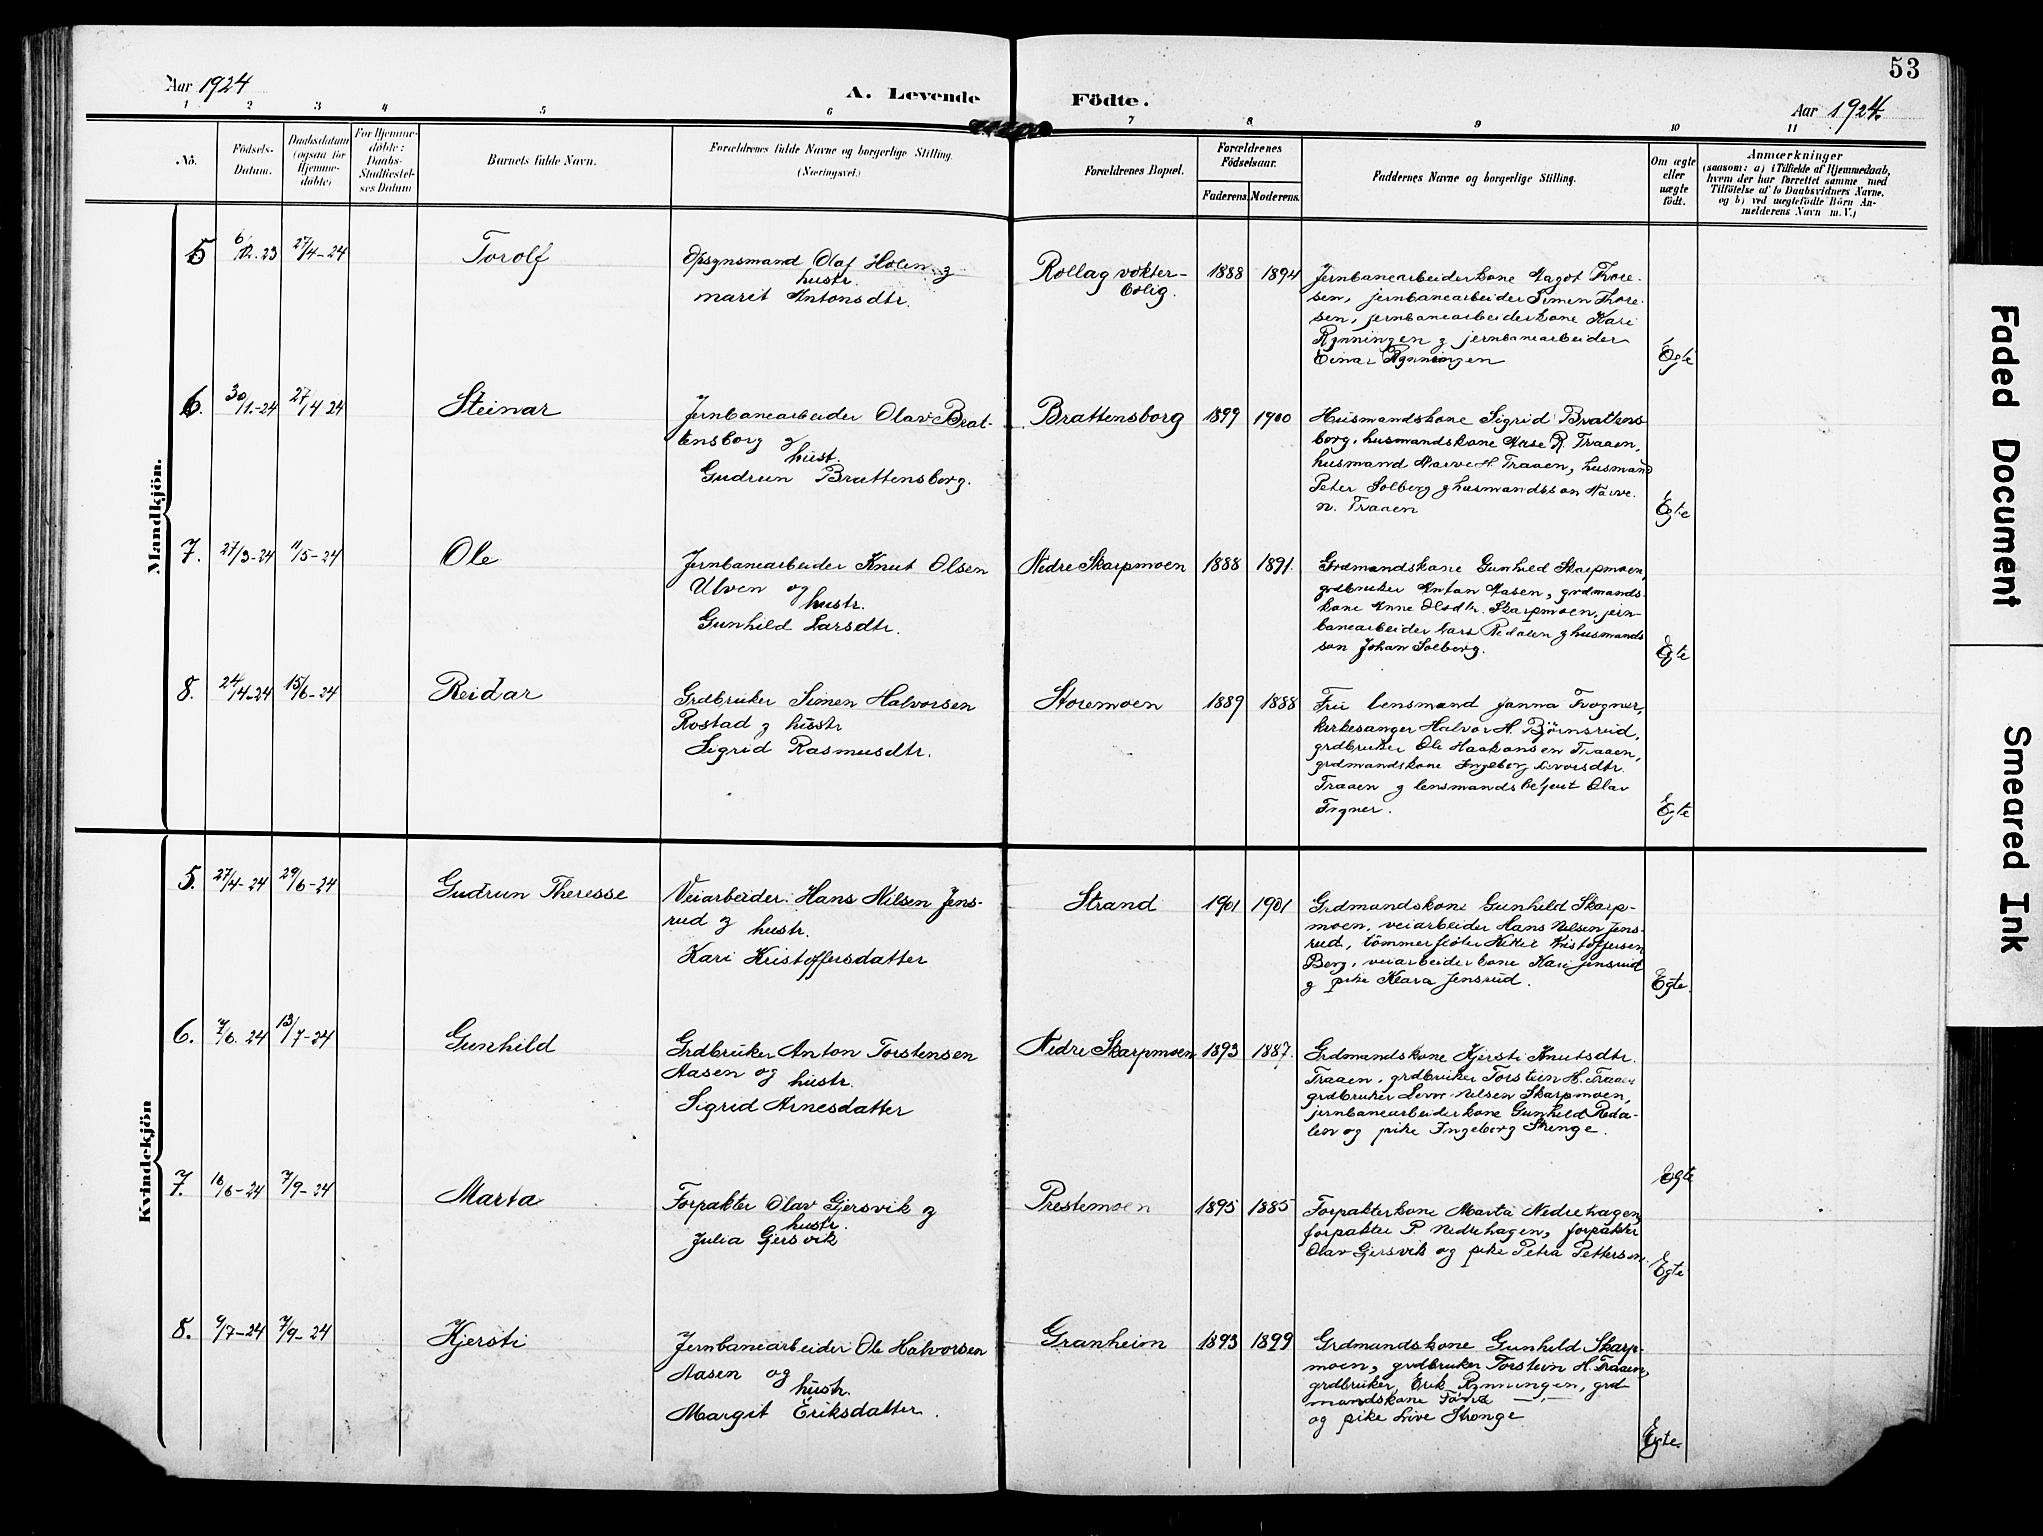 53
Aar 1924
A. Levende Födte.
Aar 1924.
1 2 3 4 5 6 7 8. 9 10 11
No.
Födsels-
Datum.
Daabsdatum
(ogsaa for
Hjemme-
döbte)
For Hjemme-
döbte:
Daabs-
Stadfæstel-
ses Datum
Barnets fulde Navn.
Forældrenes fulde Navne og borgerlige Stilling.
(Næringsvei.)
Forældrenes Bopæl.
Forældrenes
Födselsaar.
Faderens. Moderens.
Faddernes Navne og borgerlige Stilling.
Om ægte
eller
uægte
födt.
Anmærkninger
(saasom: a) i Tilfælde af Hjemmedaab,
hvem der har forrettet samme med
Tilföielse af to Daabsvidners Navne.
og b) ved uægtefödte Börn An-
melderens Navn m. V.)
Mandkjön.
5 6/12.23 27/4-24
Torolf
Opsynsmand Olaf Holen g
hustr.
Marit Antonsdtr.
Rollag vokter-
bolig.
1888 1894
Jernbanearbeiderkone Aagot Thore-
sen, jernbanearbeider Simen Thore-
sen, jernbanearbeiderkone Kari
Rynningen g jernbanearbeider
Einar Rynningen
Egte
6. 30/1.-24 27/4 24
Steinar
Jernbanearbeider Olav Brat-
tensborg g
hust.
Gudrun Brattensborg.
Brattensborg
1899 1900
Husmandskone Sigrid Brattens
borg, husmandskone Aase R. Traaen,
husmand Narve H. Traaen, husmand
Peter Solberg g husmandsson Narve
N. Traaen
Egte
7. 27/3-24 11/5-24
Ole
Jernbanearbeider Knut Olsen
Ulven og
hustr.
Gunhild Larsdtr.
Nedre Skarpmoen
1888 1891.
Grdmandskone Gunhild Skarpmoen,
grdbruker Anton Aasen, grdmands-
kone Anne Olsdtr. Skarpmoen, jern-
banearbeider Lars Redalen g husmands
son Johan Solberg.
Egte
8. 24/4-24 15/6-24
Reidar
Grdbruker Simen Halvorsen
Rostad g hustr
Sigrid Rasmusdtr.
Storemoen
1889 1888
Fru lensmand Janna Frogner,
kirkesanger Halvor H. Bjørnsrud,
grdbruker Ole Haakonsen Traaen,
grdmandskone Ingeborg
Traaen g lensmandsbetjent Olav
Frgner.
Egte
Kvindekjön
5. 27/4-24 29/6-24
Gudrun Theresse
Veiarbeider Hans Nilsen Jens-
rud g hustr.
Kari Kristoffersdatter
Strand
1901 1901
Grdmandskone Gunhild Skarp-
moen, veiarbeider Hans Nilsen Jens-
rud, tømmerfløter Kristoffersen
Berg, veiarbeiderkone Kari Jensrud
g pike Klara Jensrud.
Egte.
6. 7/6. 24 13/7-24
Gunhild
Grdbruker Anton Torstensen
Aasen og hustr.
Sigrid Arnesdatter
Nedre Skarpmoen
1893 1887.
Grdmandskone Kjersti Knutsdtr.
Traaen, grdbruker Torstein H. Traaen
grdbruker Nilsen Skarpmoen,
jernbanearbeiderkone Gunhild Reda-
len og pike Ingeborg Stenge.
Egte
7. 16/6-24 7/9-24
Marta
Forpakter Olav Gjersvik g
hustr.
Julia Gjersvik
Prestemoen
1895 1885
Forpakterkone Marta Nedrehagen,
forpakter P. Nedrehagen, forpakter
Olav Gjersvik og pike Petra Pettersen.
Egte
8. 9/7-24 7/9-24
Kjersti
Jernbanearbeider Ole Halvorsen
Aasen og
hustr.
Margit Eriksdatter.
Granheim
1893 1899
Grdmandskone Gunhild Skarp-
moen, grdbruker Torstein H. Traaen,
grdbruker Erik Rynningen, grd
mandskone
og pike Live Stronge
Egte.
Faded Document
Smeared Ink